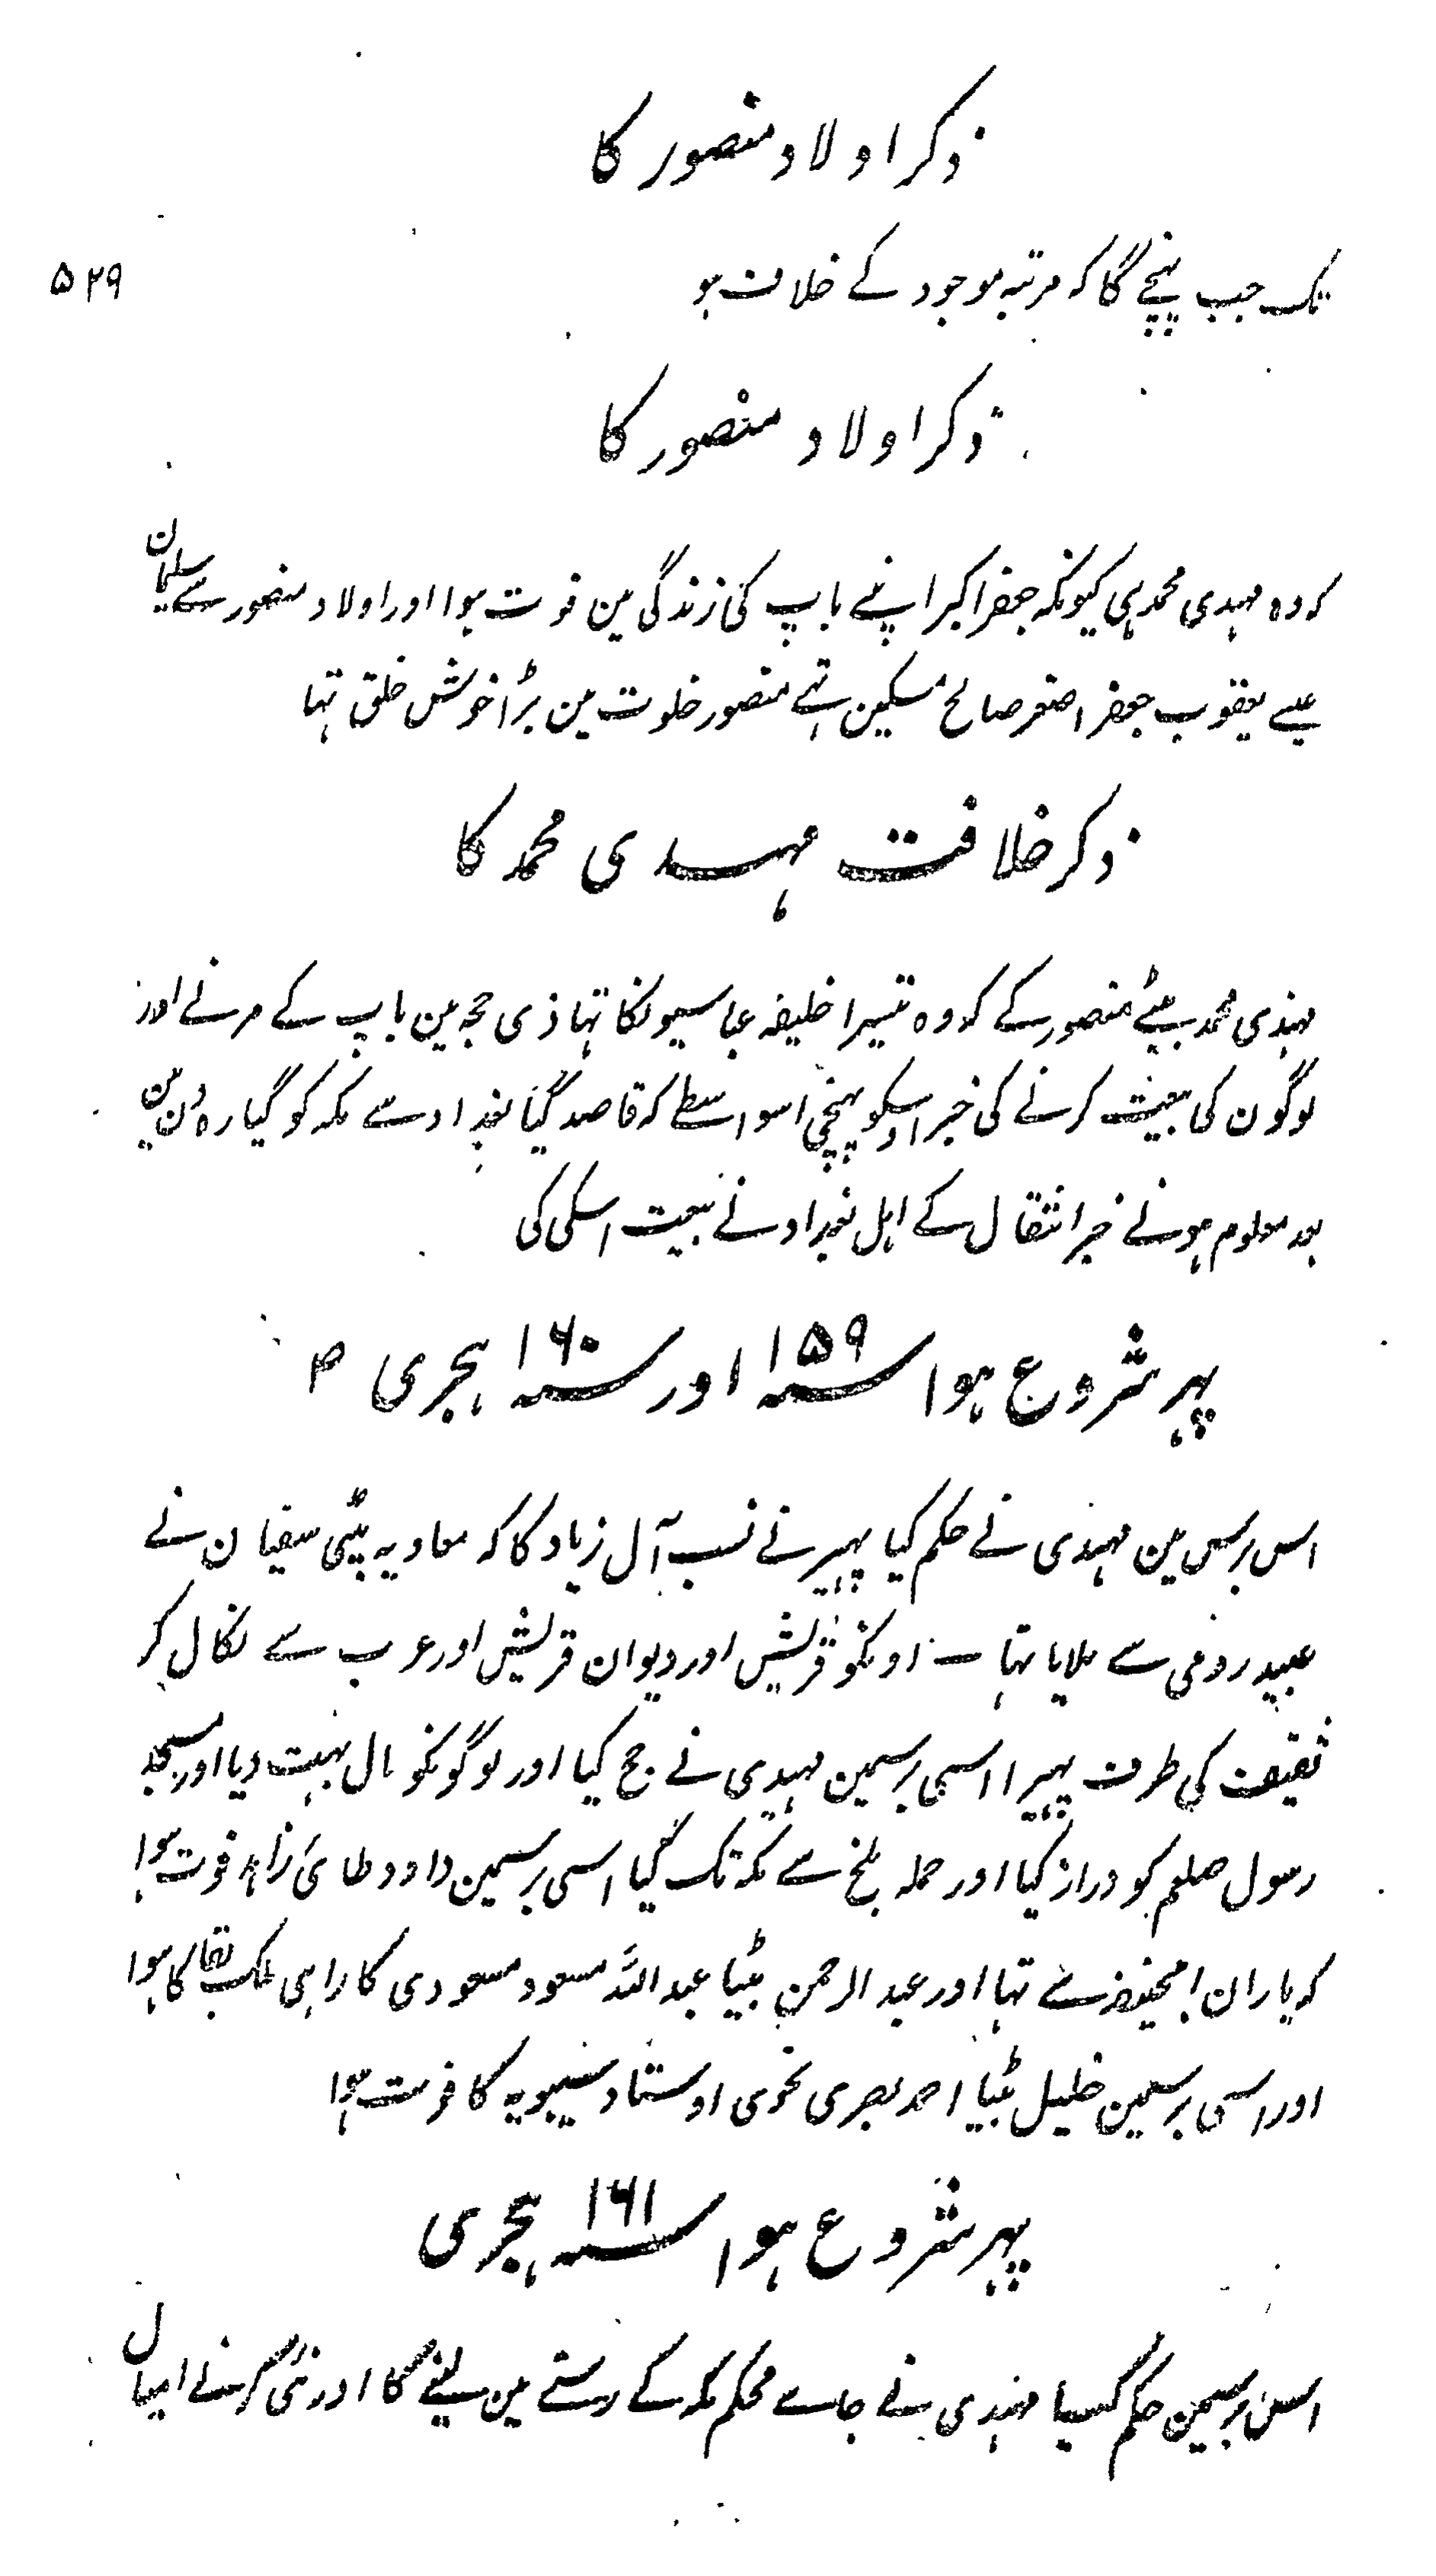 ذکر اولاد منصور کا
تک جب پنہچے گا کہ مرتبہ موجود کے خلاف ہو
۵۲۹
ذکر اولاد منصور کا
کہ وہ مہدی محمد ہی کیونکہ جعفر اکبر اپنے باپ کی زندگی مین فوت ہوا اور اولاد منصور سے سلیمان
عیسے یعقوب جعفر اصغر صالح مسکین تہے منصور خلوت مین بڑا خوش خلق تہا
ذکر خلافت مہدی محمد کا
مہدی محمد بیٹے منصور کے کہ وہ تیسرا خلیفہ عباسیونکا تہا ذی حجہ مین باپ کے مرنے اور
لوگون کی بیعت کرنے کی خبر اوسکو پہنچی اسواسطے کہ قاصد گیا بغداد سے مکہ کو گیارہ دن مین
بعد معلوم ہونے خبر انتقال کے اہل بغداد نے بیعت اسکی کی
پہر شروع ہوا سنہ ۱۵۹ اور سنہ ۱۶۰ ہجری
اس برس مین مہدی نے حکم کیا پہیرنے نسب آل زیاد کا کہ معاویہ بیٹی سفیان نے
عبید رومی سے ملایا تہا ـ اونکو قریش اور دیوان قریش اور عرب سے نکال کر
ثقیف کی طرف پہیرا اسی برسمین مہدی نے حج کیا اور لوگونکو مال بہت دیا اور مسجد
رسول صلعم کو دراز کیا اور حملہ بلخ سے مکہ تک گیا اسی برسمین داود طائی زاہد فوت ہوا
کہ یاران ابحنیفہ سے تہا اور عبد الرحمن بیٹا عبد اللہ مسعود مسعودی کا راہی ملک بقا کا ہوا
اور اسی برسمین خلیل بیٹا احمد بصری نحوی اوستاد سیبویہ کا فوت ہوا
پہر شروع ہوا سنہ ۱۶۱ ہجری
اس برسمین حکم کیا مہدی نے جاے محکم مکہ کے رستے مین لینے کا اور نئی کرنے امیال